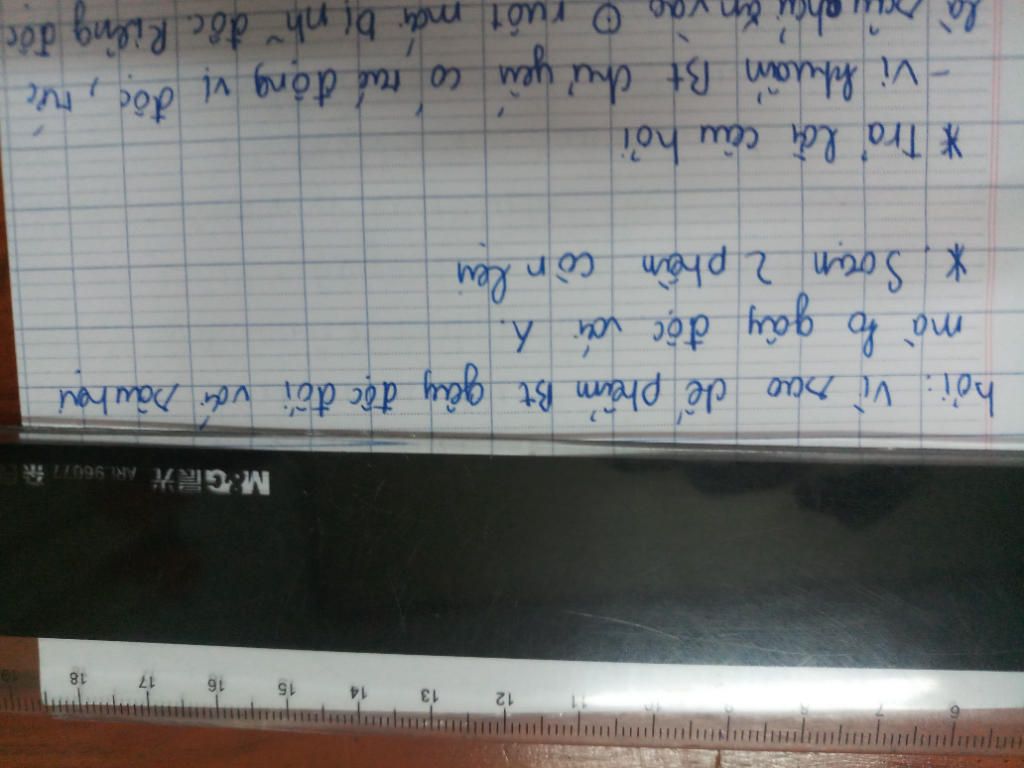 6 7 8 9 10 11 12 13 14 15 16 17 18 19
M&G 晨光 ARL96077
hỏi: Vì sao chế phẩm Bt gây độc đối với sâu hại
mà ko gây độc với
* Soạn 2 phần còn lại
* Trả lời câu hỏi
- Vi khuẩn Bt chủ yếu có động vị độc, tức
là sâu phải ăn vào ruột mới bị độc. Riêng độc